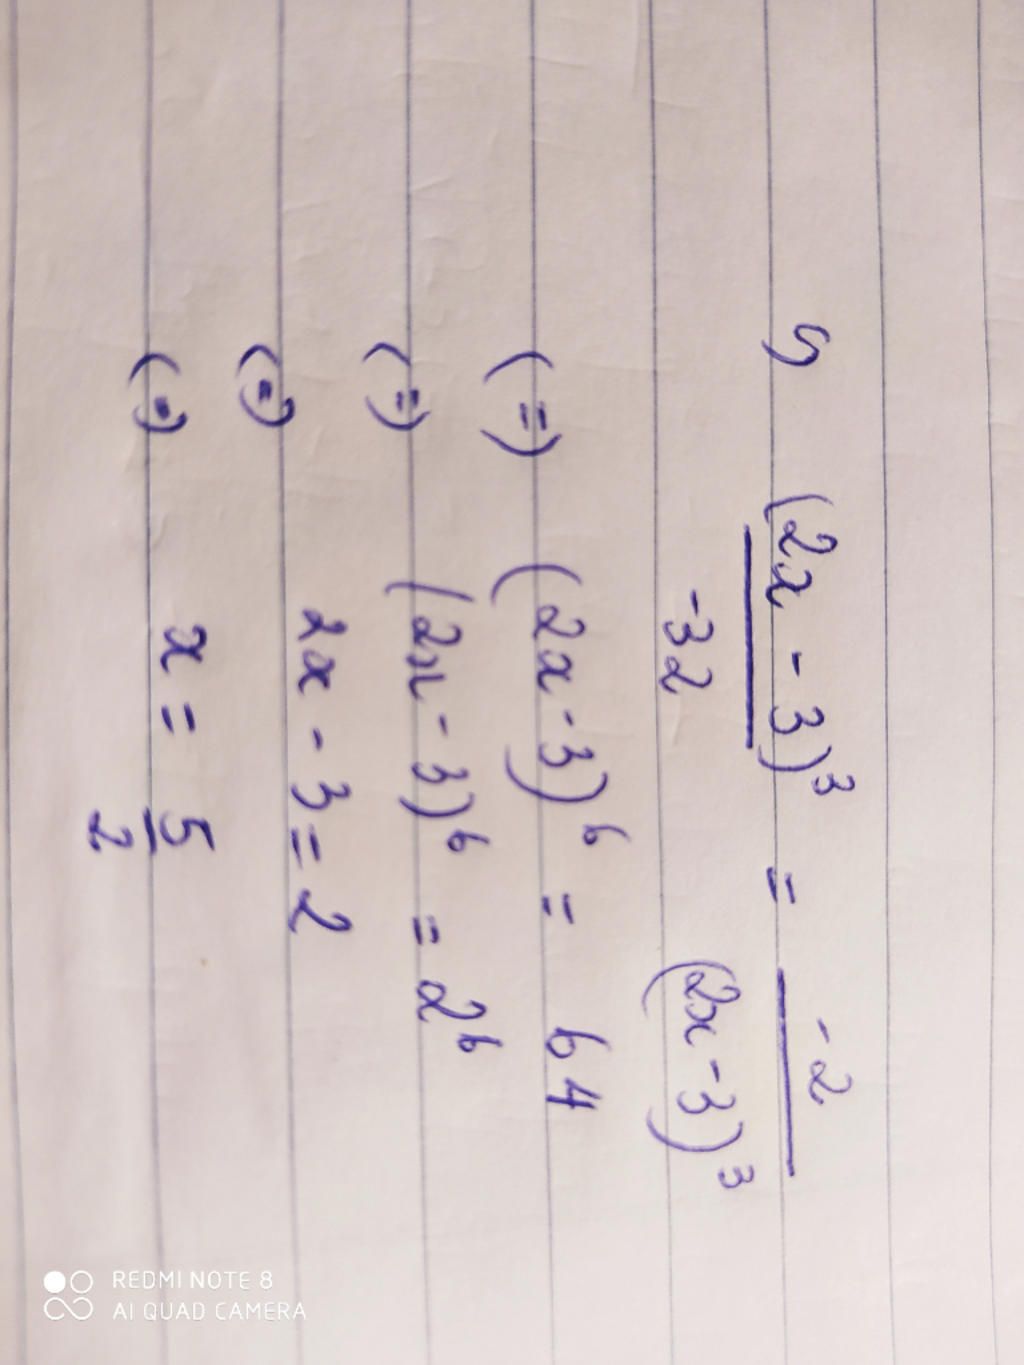 5) (2x - 3)³ / -32 = -2 / (2x - 3)³
(=) (2x - 3)⁶ = 64
(=) (2x - 3)⁶ = 2⁶
(=) 2x - 3 = 2
(=) x = 5/2
REDMI NOTE 8
AI QUAD CAMERA